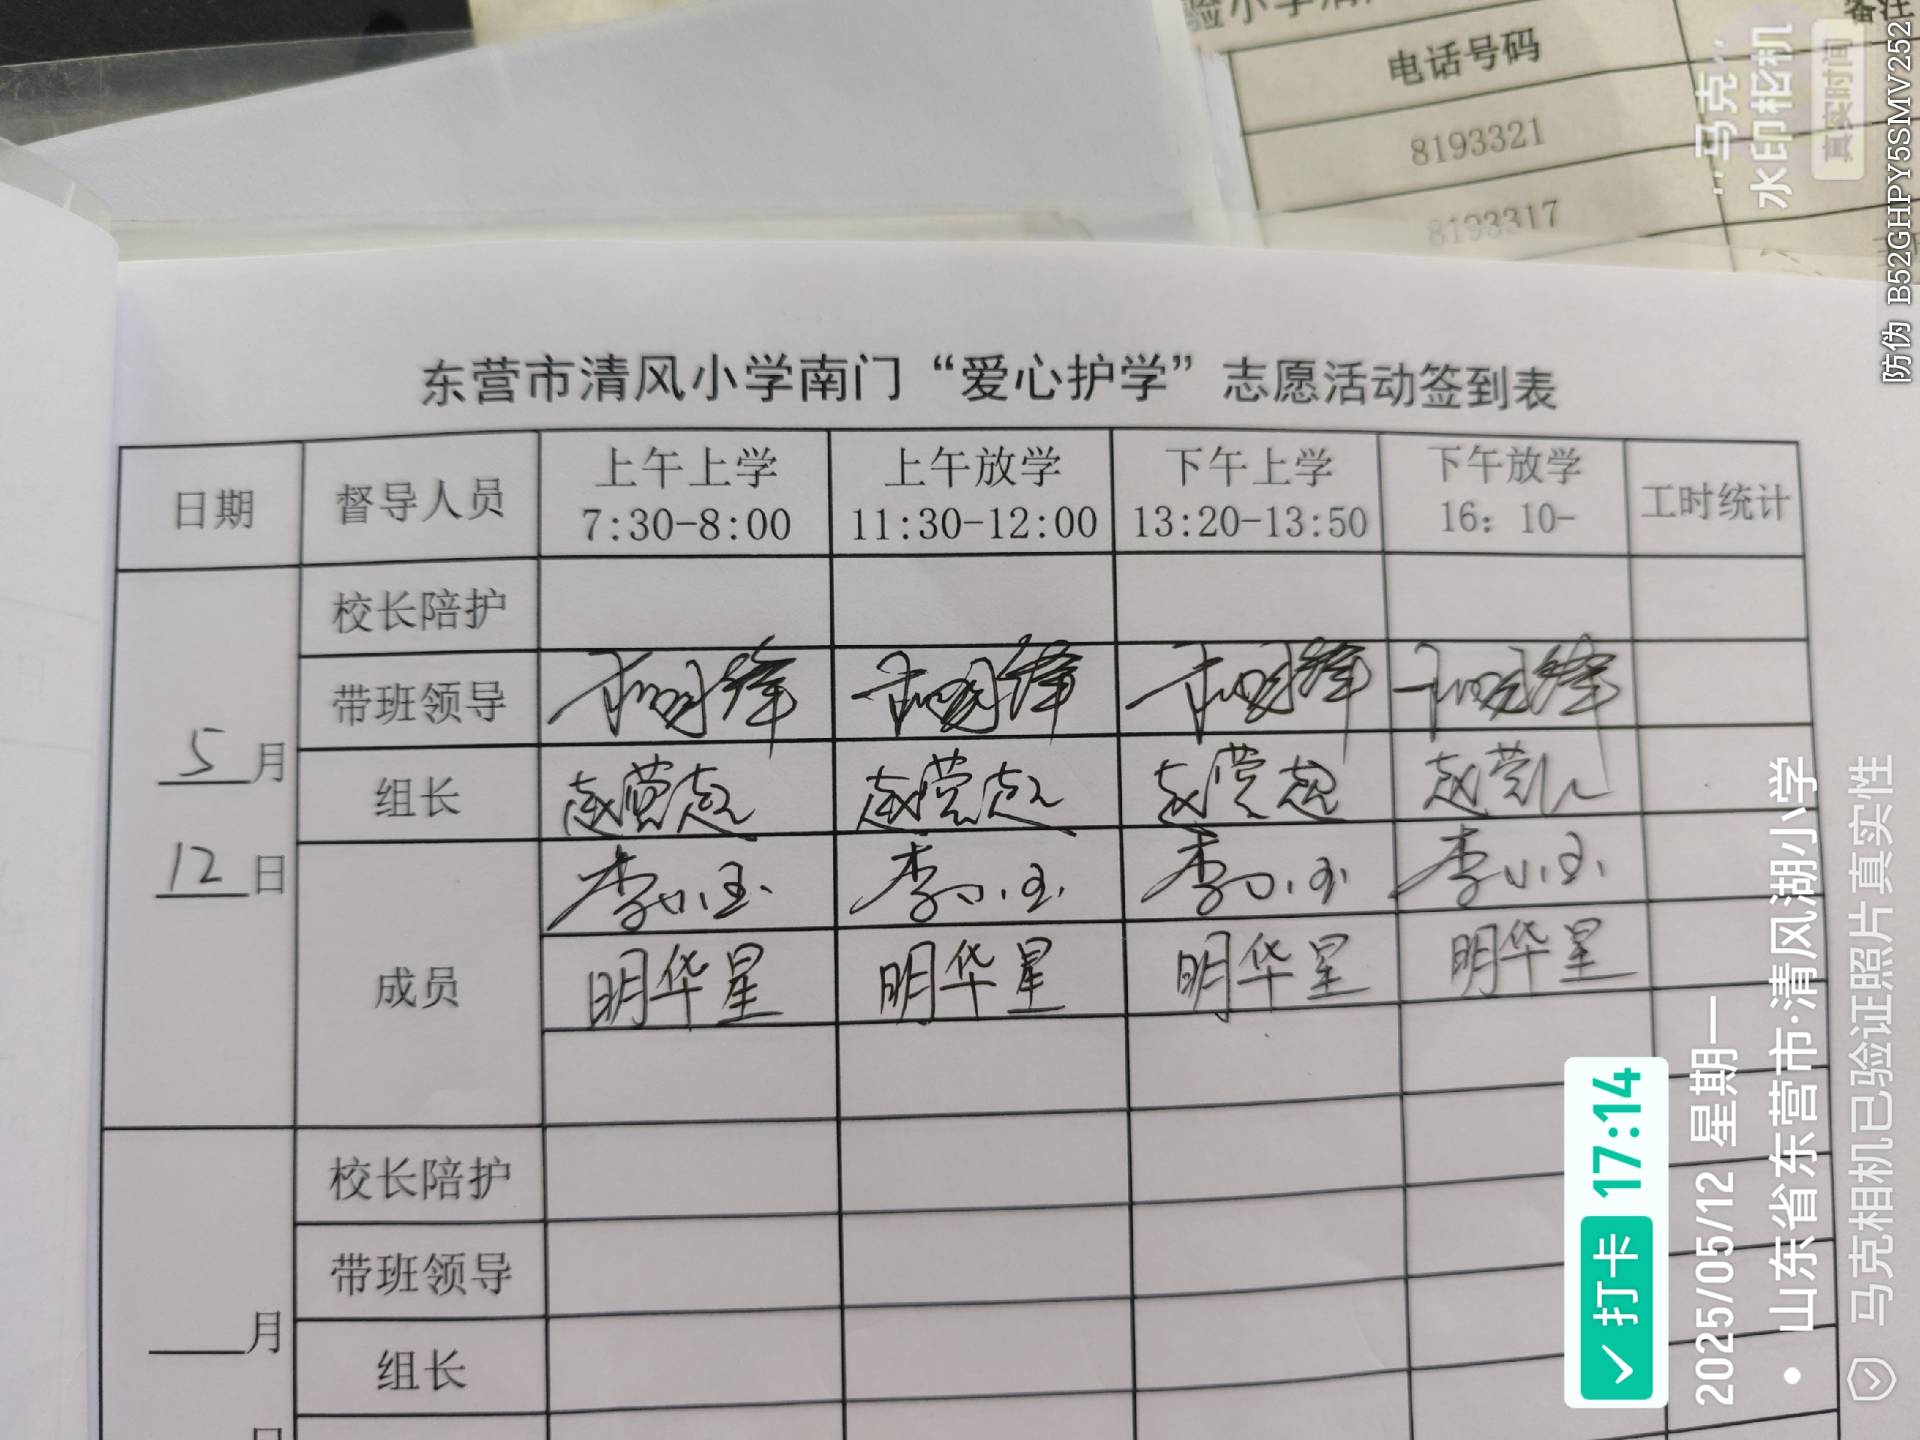 备注
电话号码
8193321
8193317
东营市清风小学南门“爱心护学”志愿活动签到表
日期 督导人员 上午上学 7:30-8:00 上午放学 11:30-12:00 下午上学 13:20-13:50 下午放学 16: 10- 工时统计
5月
12日
校长陪护
带班领导
组长 赵营超 赵营超 赵营超
成员
李小玉 李小玉 李小玉 李小玉
明华星 明华星 明华星 明华星
校长陪护
带班领导
月
组长
日
马克
水印相机
真实时间
防伪 B52GHPY5SMV252
打卡 17:14
2025/05/12 星期一
山东省东营市·清风湖小学
马克相机已验证照片真实性